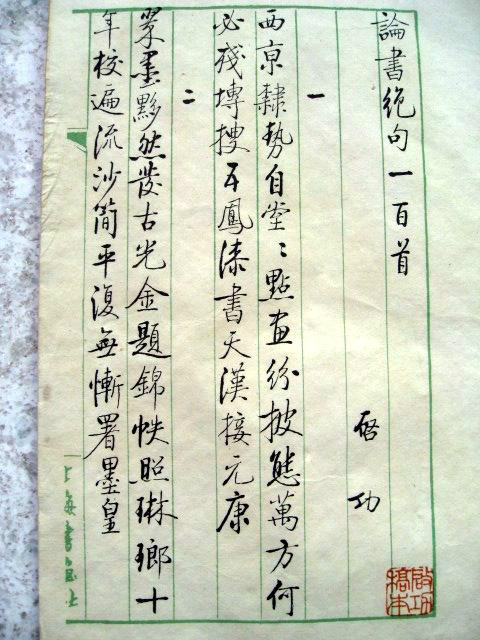 論書絕句一百首
啓功
一
西京隸勢自堂〻點畫紛披態萬方何
必殘塼搜五鳳漆書天漢接元康
二
翠墨黟然發古光金題錦帙照琳瑯十
年校遍流沙簡平復無慚署墨皇
啟功
稿本
上海書画社